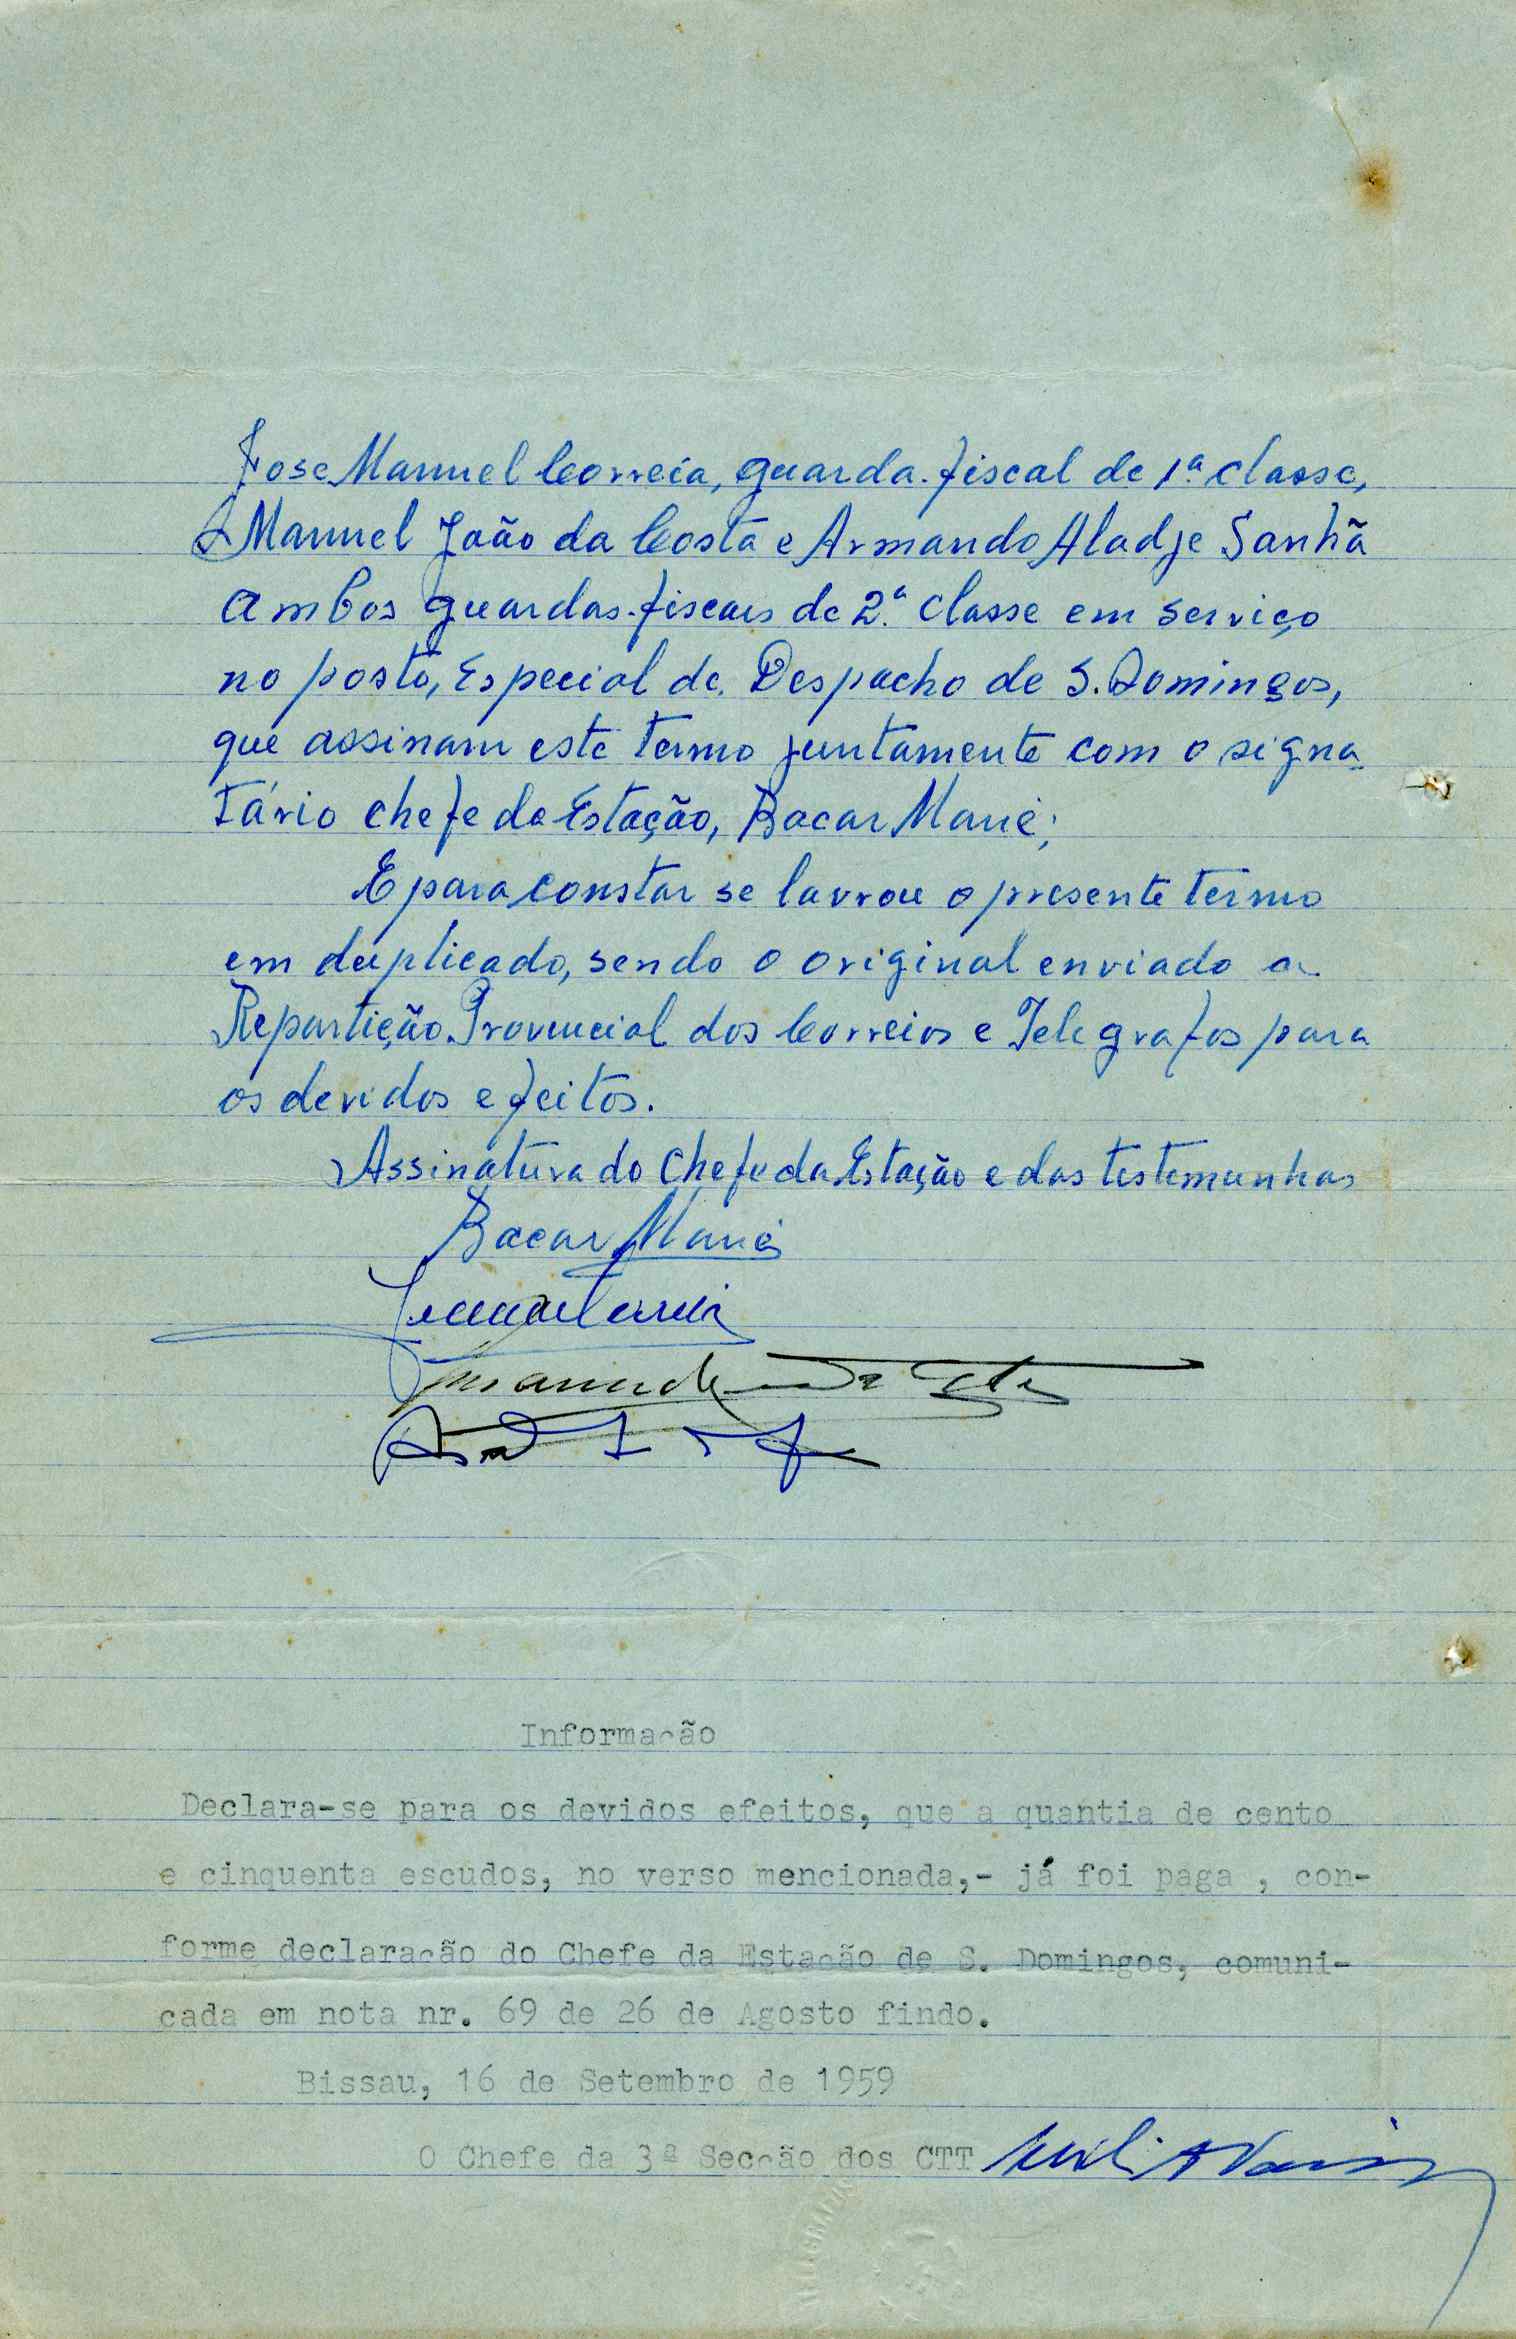 Jose Manuel Correia, guarda-fiscal de 1ª classe,
Manuel João da Costa e Armando Aladje Sanhã
ambos guardas-fiscais de 2ª classe em serviço
no posto, Especial de Despacho de S. Domingos,
que assinam este termo juntamente com o signa-
tário chefe da Estação, Bacar Mané;
E para constar se lavrou o presente termo
em duplicado, sendo o original enviado a
Repartição Provincial dos Correios e Telegrafos para
os devidos efeitos.
Assinatura do Chefe da Estação e das testemunhas
Bacar Mané
Informação
Declara-se para os devidos efeitos, que a quantia de cento
e cinquenta escudos, no verso mencionada,- já foi paga , con-
forme declaração do Chefe da Estação de S. Domingos, comuni-
cada em nota nr. 69 de 26 de Agosto findo.
Bissau, 16 de Setembro de 1959
O Chefe da 3ª Secção dos CTT